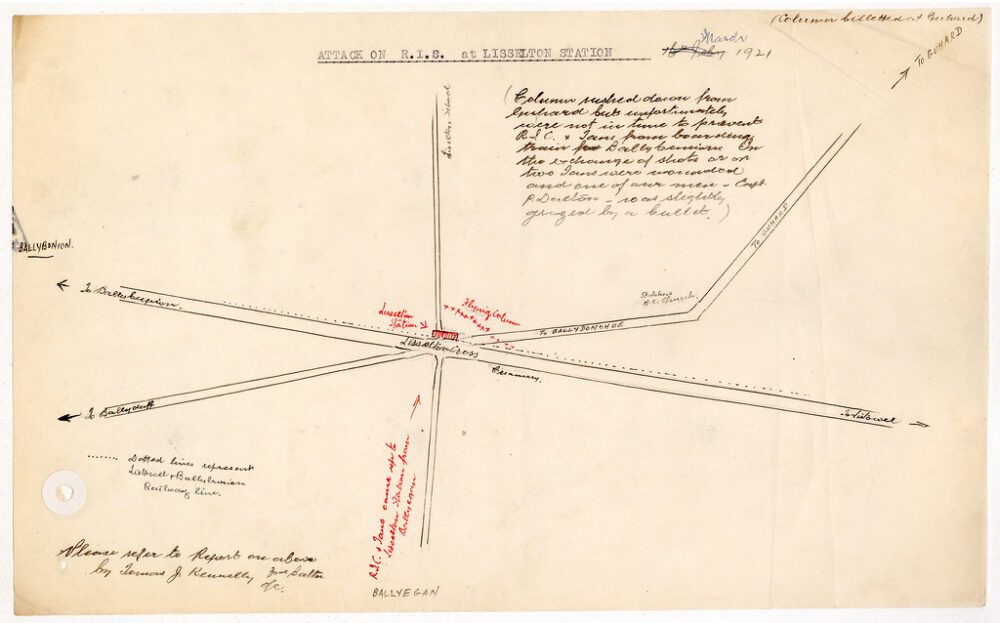 (Column billetted at Guhard)
ATTACK ON R.I.S. at LISSELTON STATION
March 1921
To GUHARD
(Column rushed down from
Guhard but unfortunately
were not in time to prevent
R.I.C. & Tans from boarding
train for Ballybunion In
the exchange of shots or on
two Tans were wounded
and one of our men – Capt
P. Dalton – was slightly
grazed by a bullet.)
To GUHARD
BALLYBONION.
To Ballybunion.
R.C. Church.
Lisselton
Station
Flying Column
To BALLYDONOHUE
Lisselton Cross
Creamery.
To Ballyduff
To Listowel
Dotted lines represent
Listowel & Ballybunion
Railway line.
R.I.C. & Tans came up to
Lisselton Station from
Ballyegan
Please refer to Report on above
by Tomas J. Kennelly 3rd Battn
o/c.
BALLYEGAN